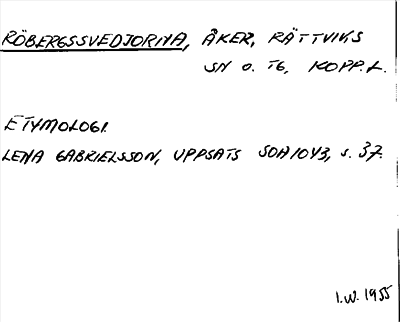 RÖBERGSSVEDJORNA, ÅKER, RÄTTVIKS
SN O. TG, KOPP.L.
ETYMOLOGI.
LENA GABRIELSSON, UPPSATS SOA1043, s. 37.
I.W. 1955